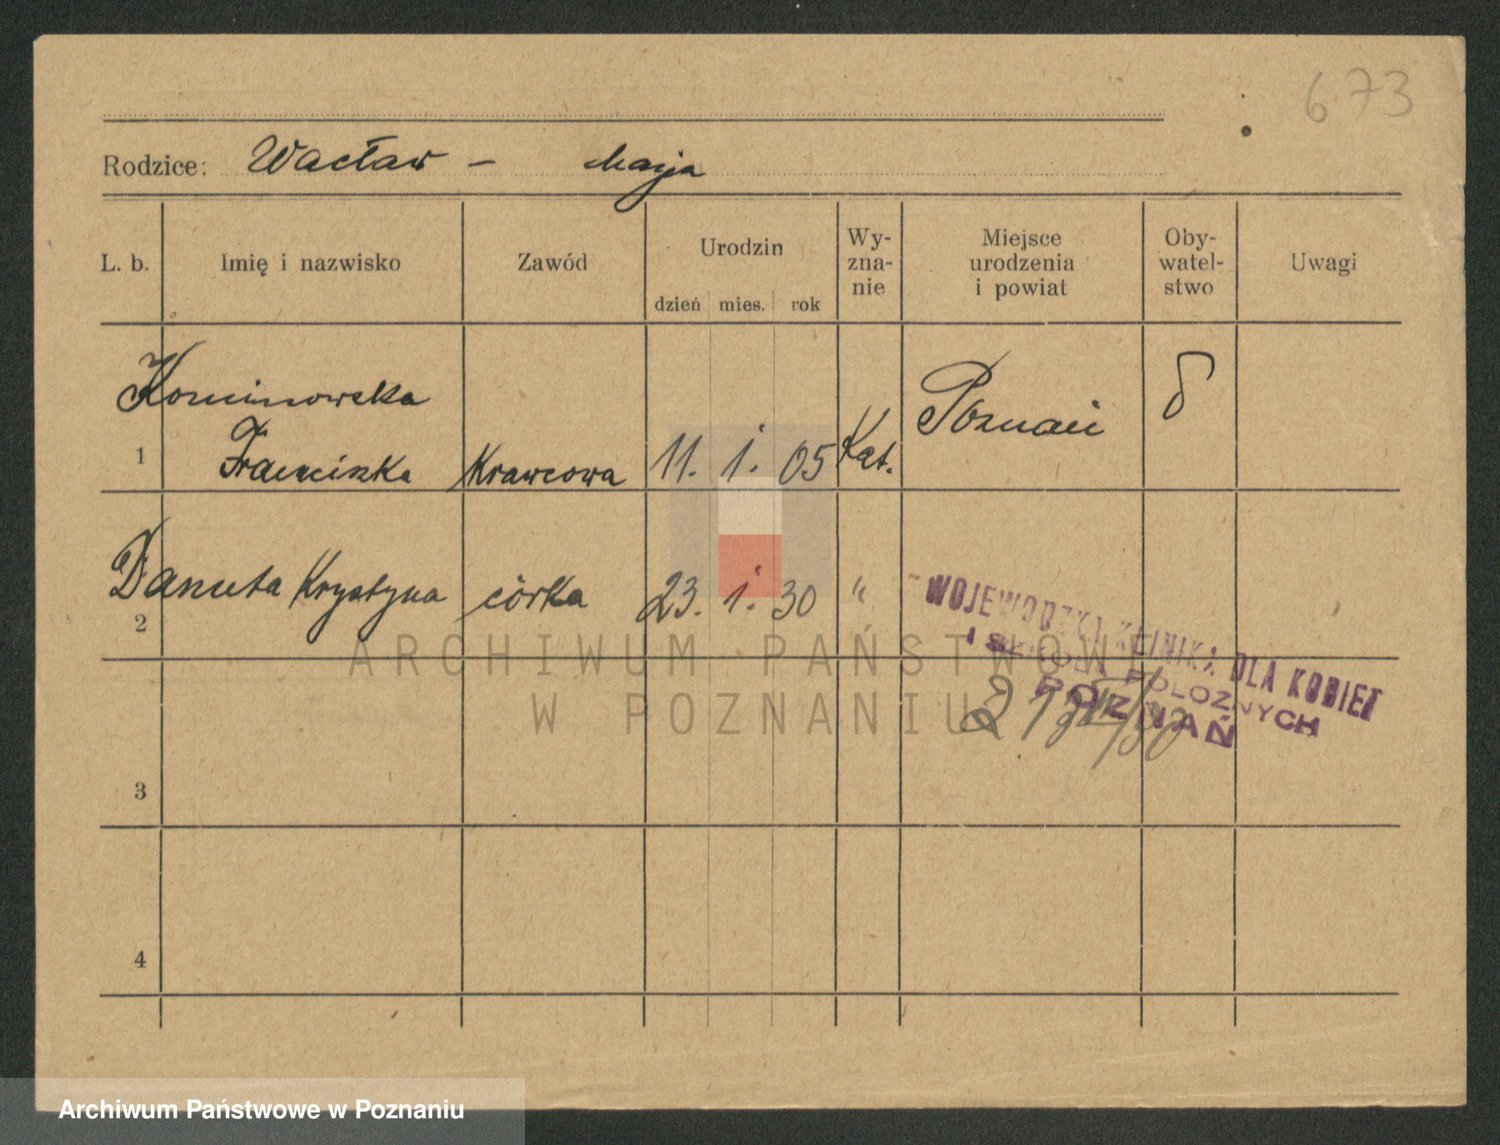 673
Rodzice: Wacław – Marja
L. b. Imię i nazwisko Zawód Urodzin dzień mies. rok Wy-zna-nie Miejsce urodzenia i powiat Oby-watel-stwo Uwagi
Kominowska Poznań
1 Franciszka Krawcowa 11. 1. 05 Kat.
Danuta Krystyna córka 23. 1. 30 "
2
WOJEWÓDZKA KLINIKA DLA KOBIET
I SZKOŁA POŁOŻNYCH
POZNAŃ
3
4
ARCHIWUM PAŃSTWOWE
W POZNANIU
Archiwum Państwowe w Poznaniu